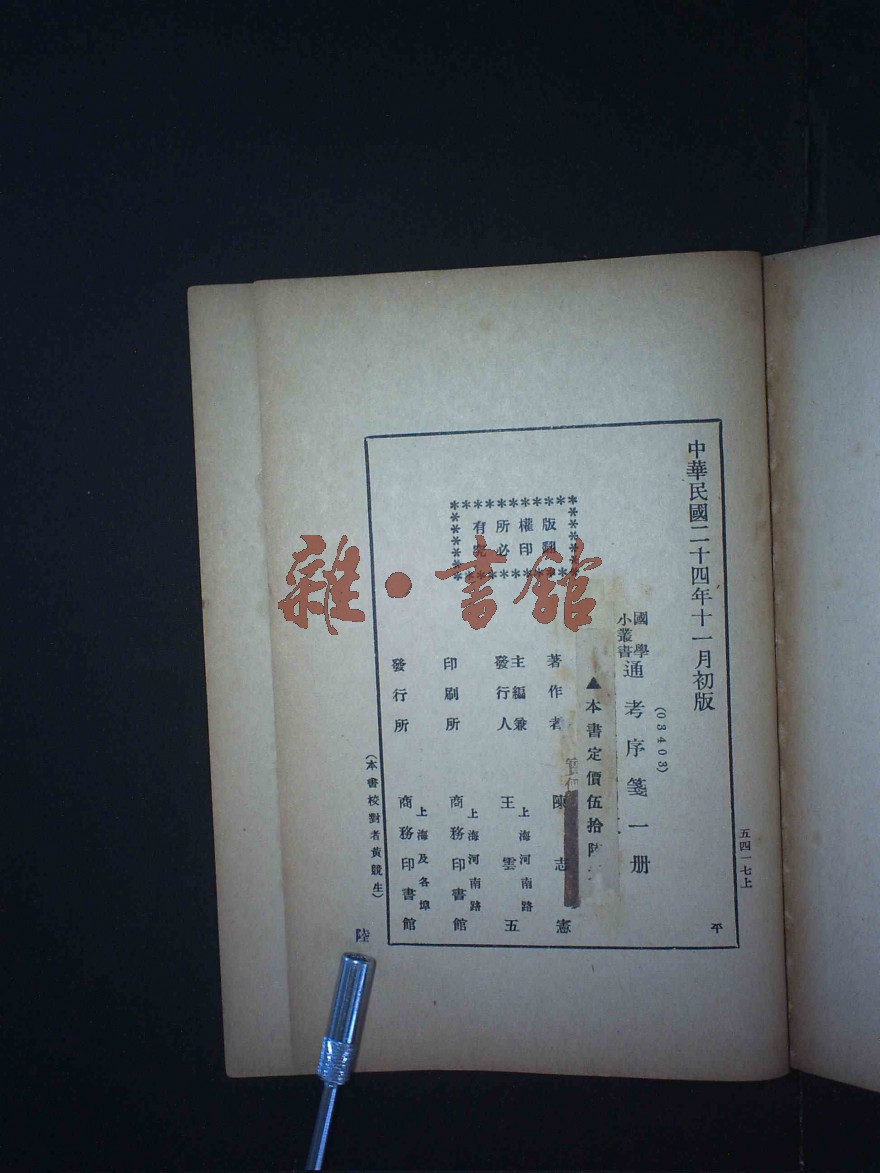 中華民國二十四年十一月初版
五四一七上
平
(03403)
國學
小叢書
通考序箋一册
▲本書定價伍拾陸
著作者 陳志憲
主編兼
發行人
上海河南路
王雲五
印刷所
上海河南路
商務印書館
發行所
上海及各埠
商務印書館
版權所有
翻印必究
(本書校對者黃競生)
陸
雜·書館